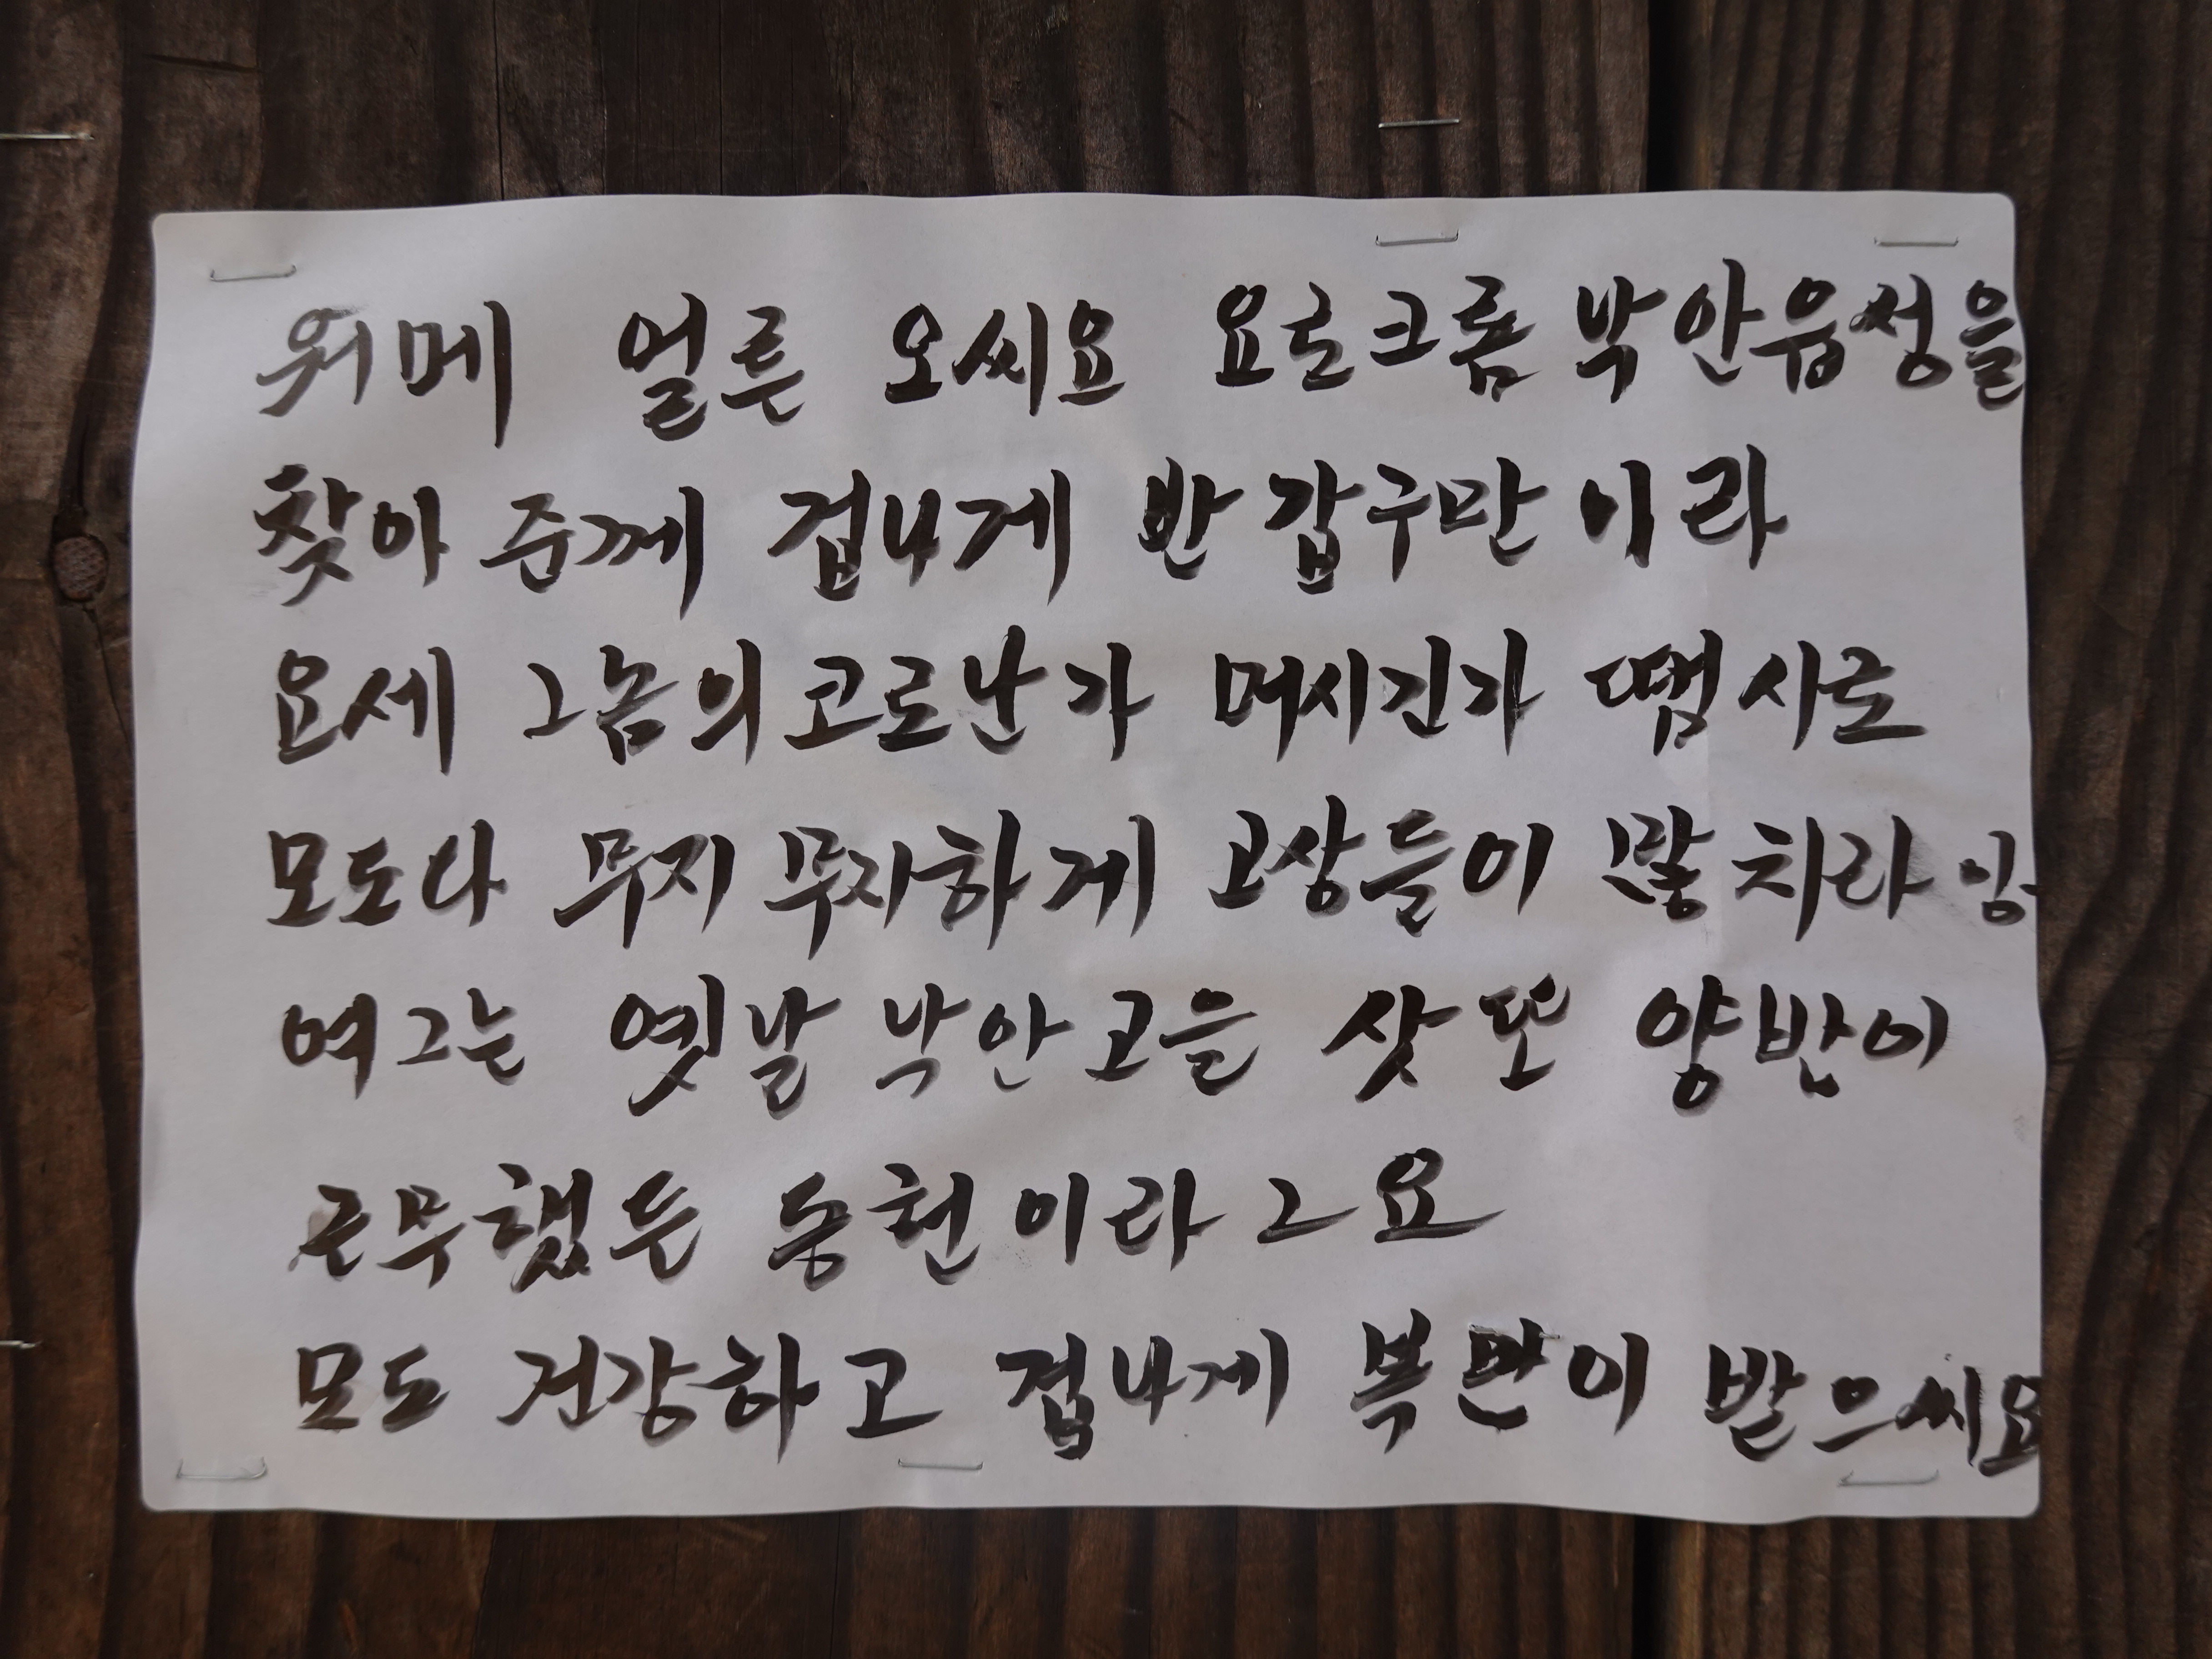 워메 얼른 오씨요 요로크롬 낙안읍성을
찾아 준께 겁나게 반갑구만이라
요세 그놈의 코로난가 머시긴가 땜시로
모도다 무지무지하게 고상들이 많치라 잉
여그는 옛날 낙안고을 삿또 양반이
근무했든 동헌이라그요
모도 건강하고 겁나게 복많이 받으씨요